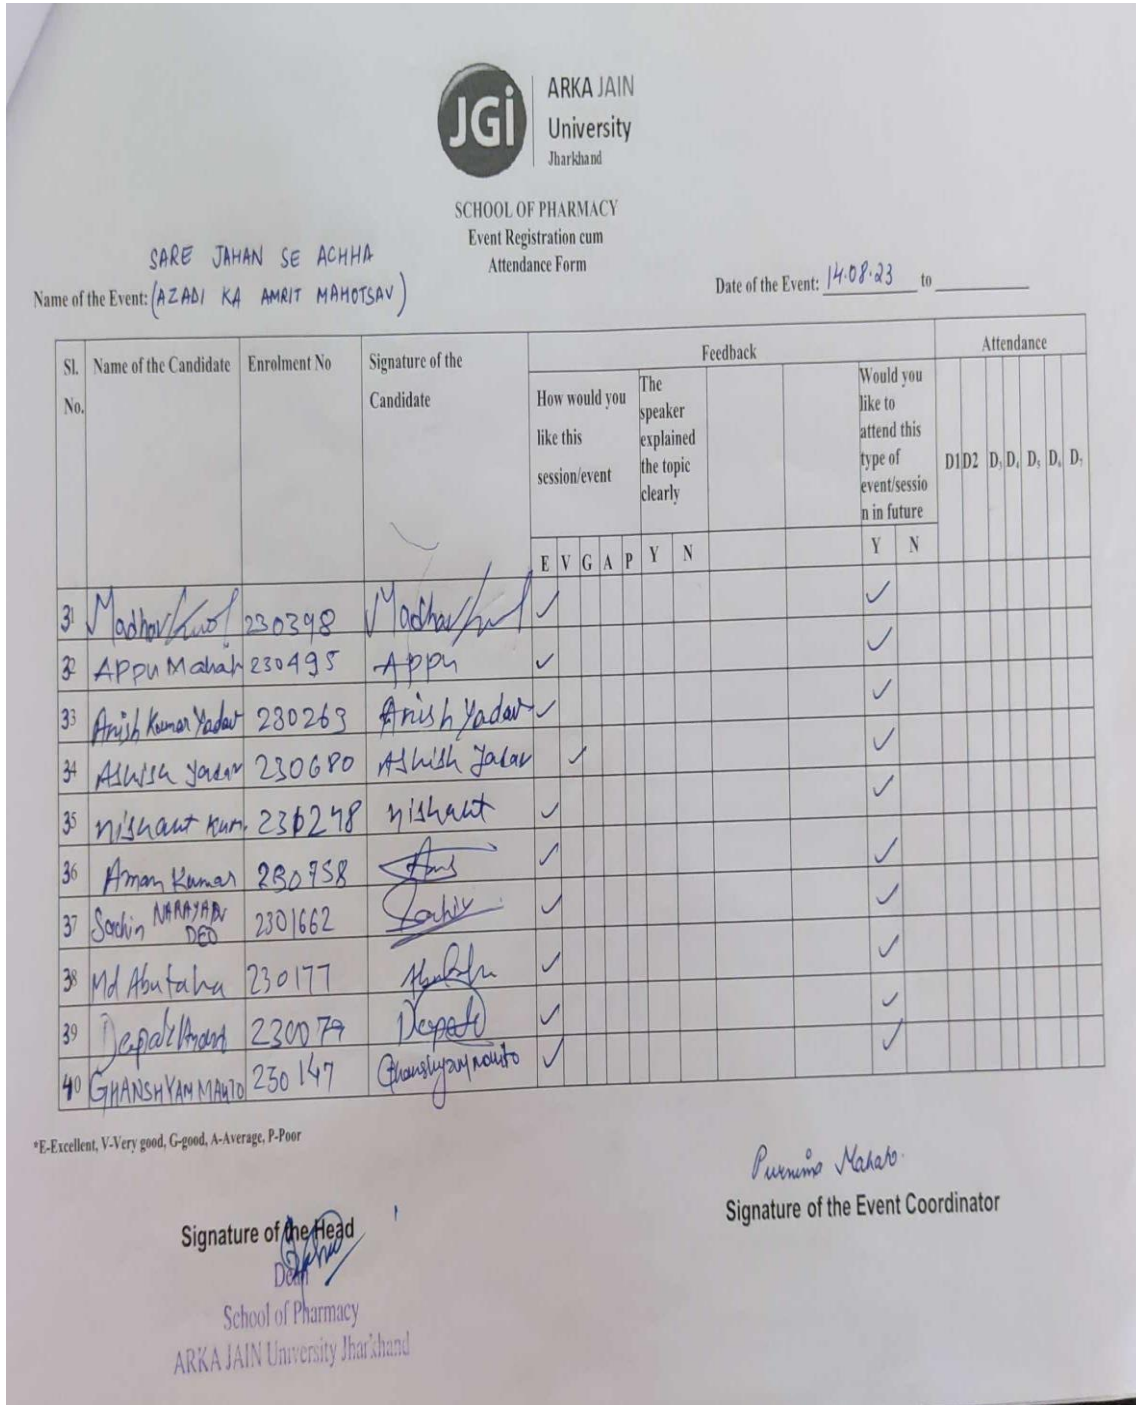 JGi
ARKA JAIN
University
Jharkhand
SCHOOL OF PHARMACY
Event Registration cum
Attendance Form
SARE JAHAN SE ACHHA
Name of the Event: (AZADI KA AMRIT MAHOTSAV)
Date of the Event: 14.08.23 to
Sl. No. Name of the Candidate Enrolment No Signature of the Candidate Feedback Attendance
How would you like this session/event
The speaker explained the topic clearly
Would you like to attend this type of event/sessio n in future
D1 D2 D3 D4 D5 D6 D7
E V G A P Y N Y N
31 Madhav 230398 Madhav ✓ ✓
32 APPu Mahat 230495 APPu ✓ ✓
33 Anish Kumar Yadav 230263 Anish Yadav ✓ ✓
34 Ashish Yadav 230680 Ashish Yadav ✓ ✓
35 Nishant Kum. 230248 Nishant ✓ ✓
36 Aman Kumar 230758 ✓ ✓
37 Sachin NARAYAN DEO 2301662 Sachin ✓ ✓
38 Md Abutaha 230177 ✓ ✓
39 Deepak 230079 Deepak ✓ ✓
40 GHANSHYAM MAHTO 230147 Ghanshyam Mahto ✓ ✓
*E-Excellent, V-Very good, G-good, A-Average, P-Poor
Purnima Mahato.
Signature of the Event Coordinator
Signature of the Head
Dean
School of Pharmacy
ARKA JAIN University Jharkhand